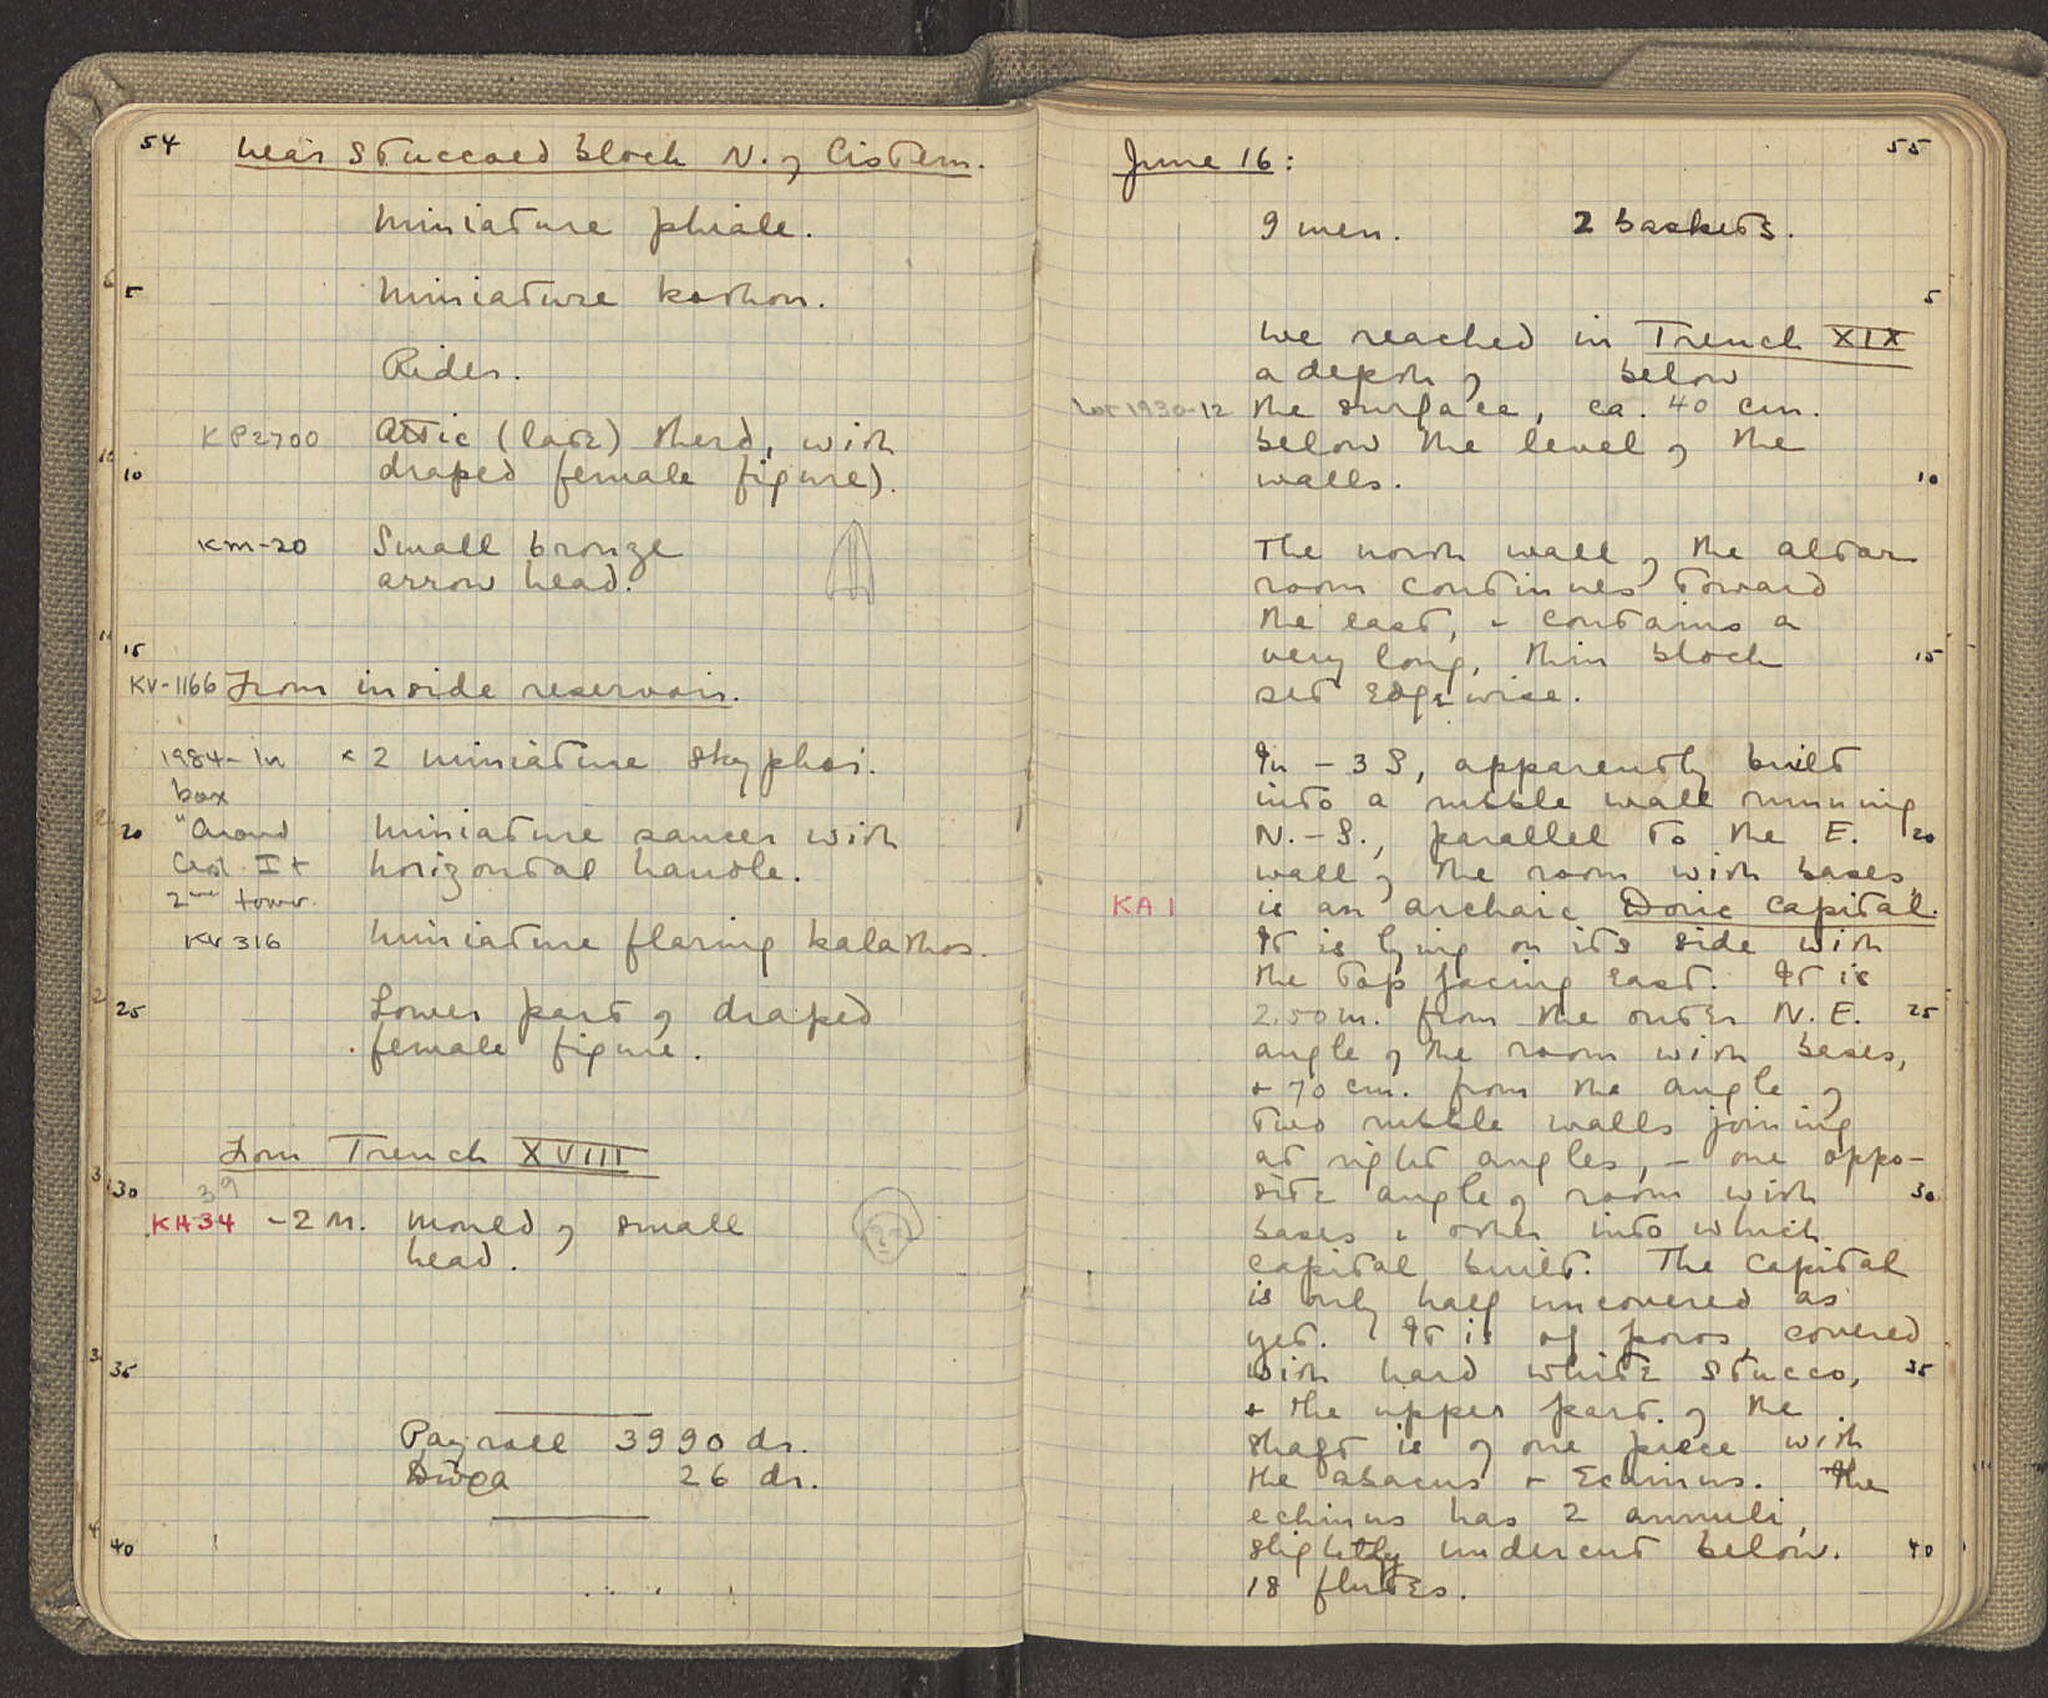 54
near stuccoed block N. of Cistern.
Miniature phiale.
5
Miniature kothon.
Rider.
KP2700 Attic (late) sherd, with
10 draped female figure).
KM-20 Small bronze
arrow head.
15
KV-1166 From inside reservoir.
1984- In x 2 miniature skyphoi.
box
20 "Around Miniature saucer with
Cist. I + horizontal handle.
2nd tower.
KV316 Miniature flaring kalathos.
25 Lower part of draped
female figure.
From Trench XVIII
30 39
KH34 -2 M. Mould of small
head.
35
Payroll 3990 dr.
26 dr.
40
55
June 16:
9 men. 2 baskets.
5
We reached in Trench XIX
a depth of below
Lot 1930-12 the surface, ca. 40 cm.
below the level of the
walls. 10
The north wall of the altar
room continues toward
the east, + contains a
very long, thin block 15
set edgewise.
In - 3 S, apparently built
into a rubble wall running
N.-S., parallel to the E. 20
wall of the room with bases,
KA 1 is an archaic Doric capital.
It is lying on its side with
the top facing east. It is
2.50 m. from the outer N.E. 25
angle of the room with bases,
+ 70 cm. from the angle of
two rubble walls joining
at right angles, - one oppo-
site angle of room with 30
bases & other into which
capital built. The capital
is only half uncovered as
yet. It is of poros, covered
with hard white stucco, 35
+ the upper part of the
shaft is of one piece with
the abacus + echinus. The
echinus has 2 annuli,
slightly undercut below. 40
18 flutes.